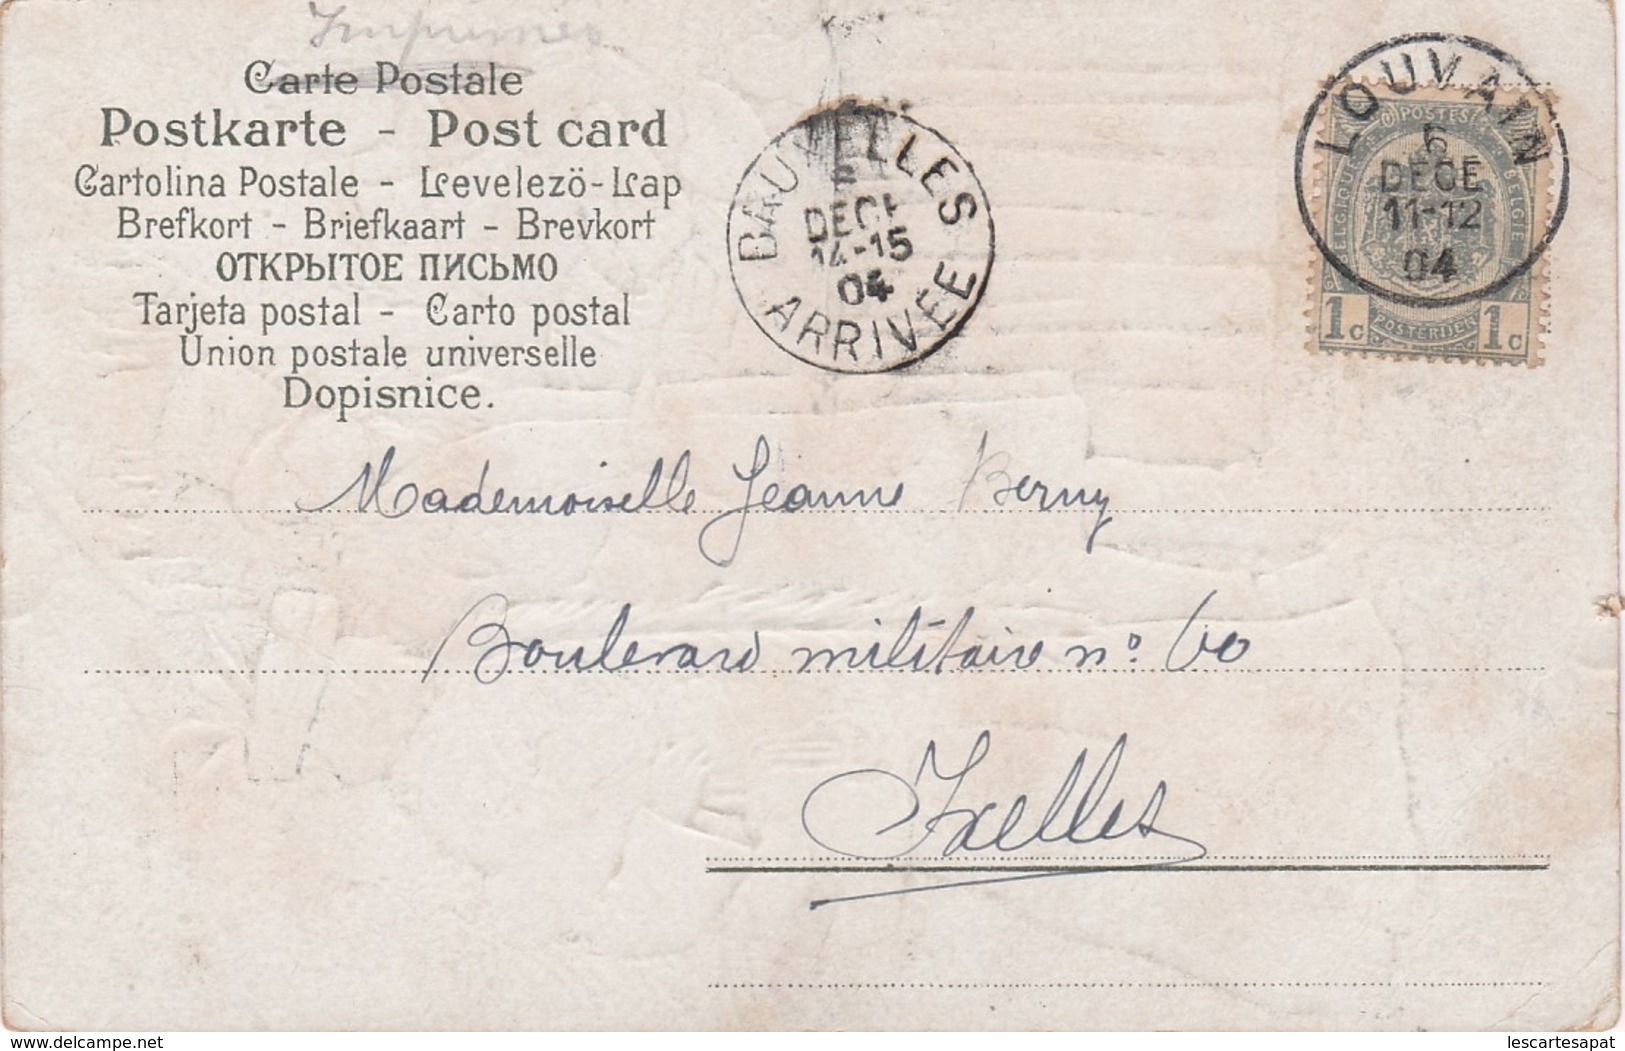 Imprimés
Carte Postale
Postkarte - Post card
Cartolina Postale - Levelezö-Lap
Brefkort - Briefkaart - Brevkort
ОТКРЫТОЕ ПИСЬМО
Tarjeta postal - Carto postal
Union postale universelle
Dopisnice.
BRUXELLES
DECE
14-15
04
ARRIVÉE
LOUVAIN
6
DECE
11-12
04
POSTES
BELGIQUE BELGIE
1c POSTERIJEN 1c
Mademoiselle Jeanne Berny
Boulevard militaire no 60
Ixelles
delcampe.net
lescartesapat